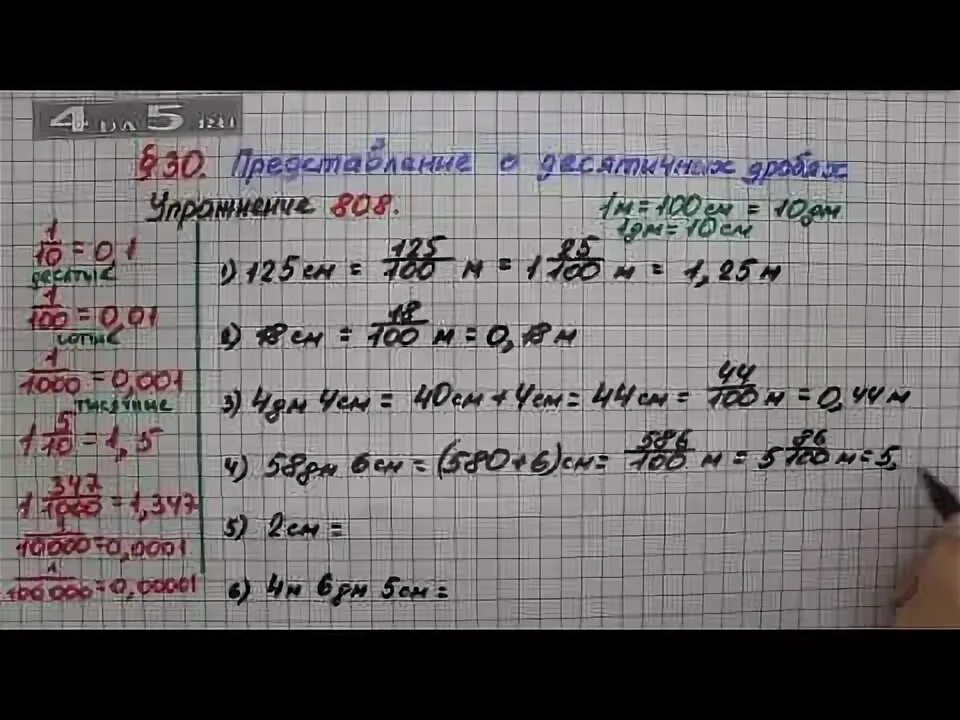 §30. Представление о десятичных дробях
Упражнение 808.
1м = 100 см = 10дм
1дм = 10 см
1/10 = 0,1
десятые
1/100 = 0,01
сотые
1/1000 = 0,001
тысячные
1 5/10 = 1,5
1 347/1000 = 1,347
1/10000 = 0,0001
1/100000 = 0,00001
1) 125 см = 125/100 м = 1 25/100 м = 1,25 м
2) 18 см = 18/100 м = 0,18 м
3) 4 дм 4 см = 40 см + 4 см = 44 см = 44/100 м = 0,44 м
4) 58 дм 6 см = (580 + 6) см = 586/100 м = 5 86/100 м = 5,
5) 2 см =
6) 4 м 6 дм 5 см =